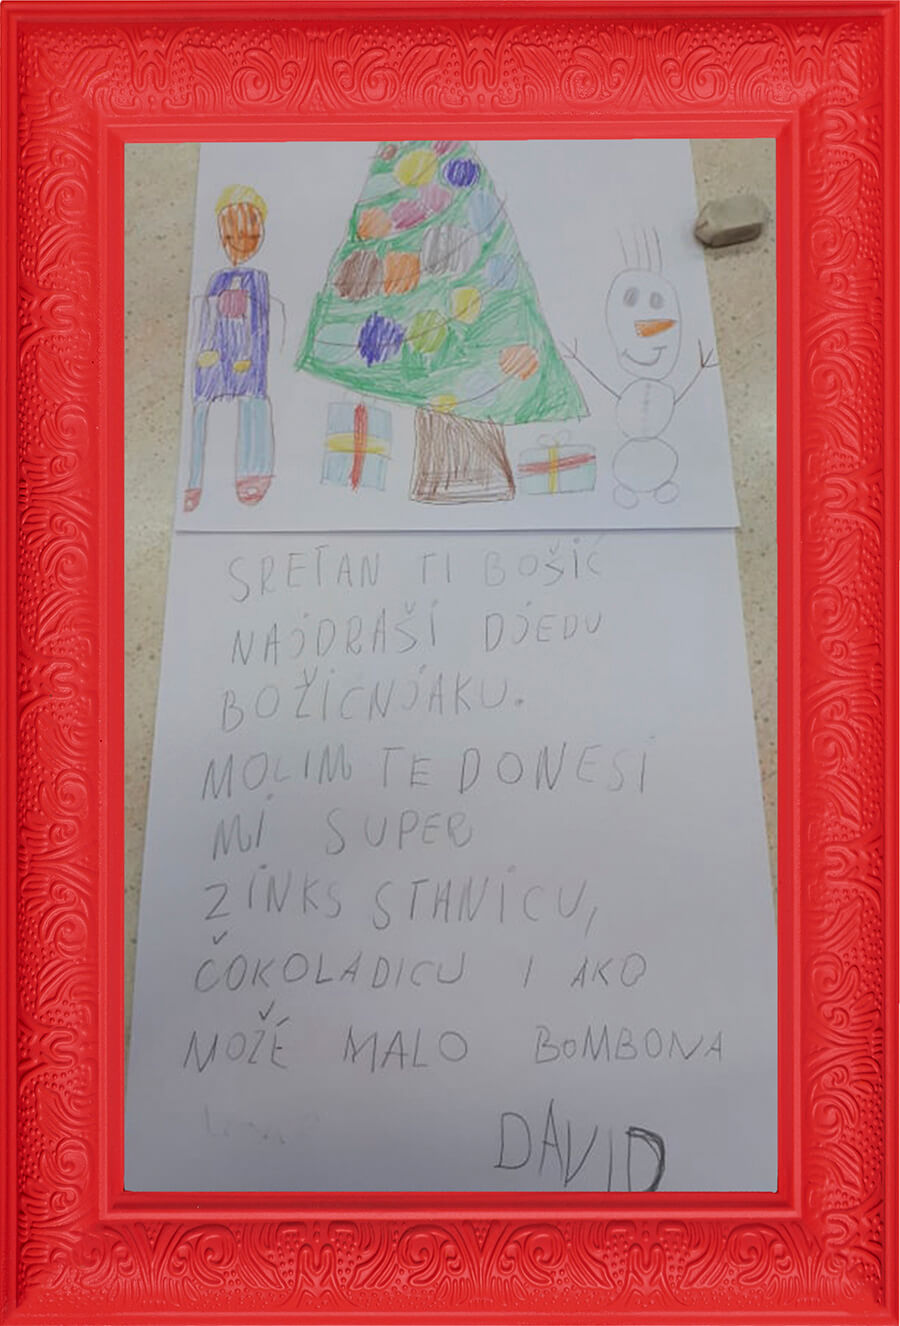 SRETAN TI BOŠIĆ
NAJDRAŠI DJEDU
BOŽICNJAKU.
MOLIM TE DONESI
MI SUPER
ZINKS STANICU,
ČOKOLADICU I AKO
MOŽE MALO BOMBONA
DAVID